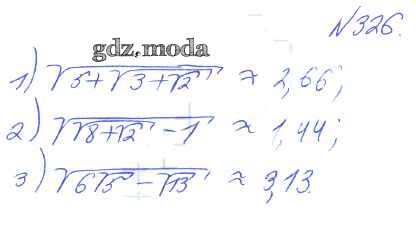 N 326.
gdz.moda
1) √5+√3+√2 ≈ 2,66;
2) √√8+√2 - 1 ≈ 1,44;
3) √6√5 - √13 ≈ 3,13.